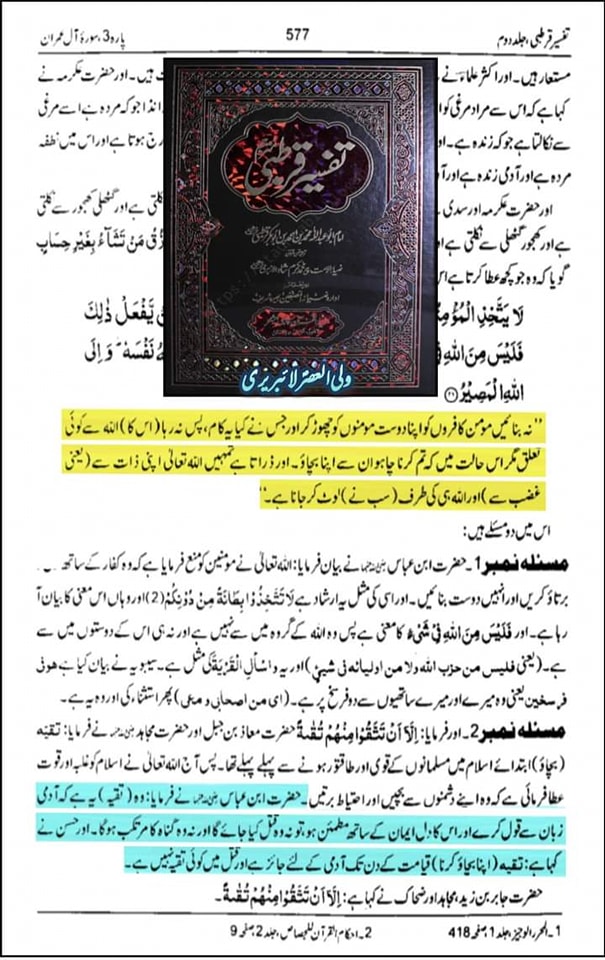 تفسیر قرطبی، جلد دوم 577 پارہ 3، سورۂ آل عمران
مستعار ہیں۔ اور اکثر علماء نے ت ہیں۔ اور حضرت عکرمہ نے
کہا ہے کہ اس سے مراد مرغی کو ا انڈا جو کہ مردہ ہے اسے مرغی
سے نکالتا ہے جو کہ زندہ ہے۔ او رج ہوتا ہے اور اس میں نطفہ
مردہ ہے اور آدمی زندہ ہے اور
اور حضرت عکرمہ اور سدی لتی ہے اور گٹھلی کھجور سے نکلتی
ہے اور کھجور گٹھلی سے نکلتی ہے او زُقُ مَنْ تَشَآءُ بِغَيْرِ حِسَابٍ
گویا کہ وہ جو کچھ عطا کرتا ہے اس
لَا يَتَّخِذِ الْمُؤْمِ نْ يَّفْعَلْ ذٰلِكَ
فَلَيْسَ مِنَ اللّٰهِ فِ هُ نَفْسَهٗ ۚ وَ اِلَى
اللّٰهِ الْمَصِيْرُ ۝۲۸
تفسیر قرطبی
ولی العصر لائبریری
’’نہ بنائیں مومن کافروں کو اپنا دوست مومنوں کو چھوڑ کر اور جس نے کیا یہ کام، پس نہ رہا (اس کا) اللہ سے کوئی
تعلق مگر اس حالت میں کہ تم کرنا چاہو ان سے اپنا بچاؤ۔ اور ڈراتا ہے تمہیں اللہ تعالیٰ اپنی ذات سے (یعنی
غضب سے) اور اللہ ہی کی طرف (سب نے) لوٹ کر جانا ہے۔‘‘
اس میں دو مسئلے ہیں:
مسئلہ نمبر 1۔ حضرت ابن عباس رضی اللہ عنہما نے بیان فرمایا: اللہ تعالیٰ نے مومنین کو منع فرمایا ہے کہ وہ کفار کے ساتھ
برتاؤ کریں اور انہیں دوست بنائیں۔ اور اسی کی مثل یہ ارشاد ہے لَا تَتَّخِذُوْا بِطَانَةً مِّنْ دُوْنِكُمْ (2) اور وہاں اس معنی کا بیان آ
رہا ہے۔ اور فَلَيْسَ مِنَ اللّٰهِ فِيْ شَيْءٍ کا معنی ہے پس وہ اللہ کے گروہ میں سے نہیں ہے اور نہ ہی اس کے دوستوں میں سے
ہے۔ (یعنی فلیس من حزب اللہ ولا من اولیائہ فی شیئ) اور یہ وَ سْئَلِ الْقَرْيَةَ کی مثل ہے۔ سیبویہ نے بیان کیا ہے ھو منی
فرسخین یعنی وہ میرے اور میرے ساتھیوں سے دو فرسخ پر ہے۔ (ای من اصحابی و معی) پھر استثنا کی اور وہ یہ ہے۔
مسئلہ نمبر 2۔ اور فرمایا: اِلَّاۤ اَنْ تَتَّقُوْا مِنْهُمْ تُقٰىةً حضرت معاذ بن جبل اور حضرت مجاہد رضی اللہ عنہما نے فرمایا: تقیہ
(بچاؤ) ابتدائے اسلام میں مسلمانوں کے قوی اور طاقتور ہونے سے پہلے پہلے تھا۔ پس آج اللہ تعالیٰ نے اسلام کو غلبہ اور قوت
عطا فرمائی ہے کہ وہ اپنے دشمنوں سے بچیں اور احتیاط برتیں۔ حضرت ابن عباس رضی اللہ عنہما نے فرمایا: وہ (تقیہ) یہ ہے کہ آدمی
زبان سے قول کرے اور اس کا دل ایمان کے ساتھ مطمئن ہو، تو نہ وہ قتل کیا جائے گا اور نہ وہ گناہ کا مرتکب ہوگا۔ اور حسن نے
کہا ہے: تقیہ (اپنا بچاؤ کرنا) قیامت کے دن تک آدمی کے لئے جائز ہے اور قتل میں کوئی تقیہ نہیں ہے۔
حضرت جابر بن زید، مجاہد اور ضحاک نے کہا ہے: اِلَّاۤ اَنْ تَتَّقُوْا مِنْهُمْ تُقٰىةً۔
1۔ المحرر الوجیز، جلد 1، صفحہ 418 2۔ احکام القرآن للجصاص، جلد 2، صفحہ 9